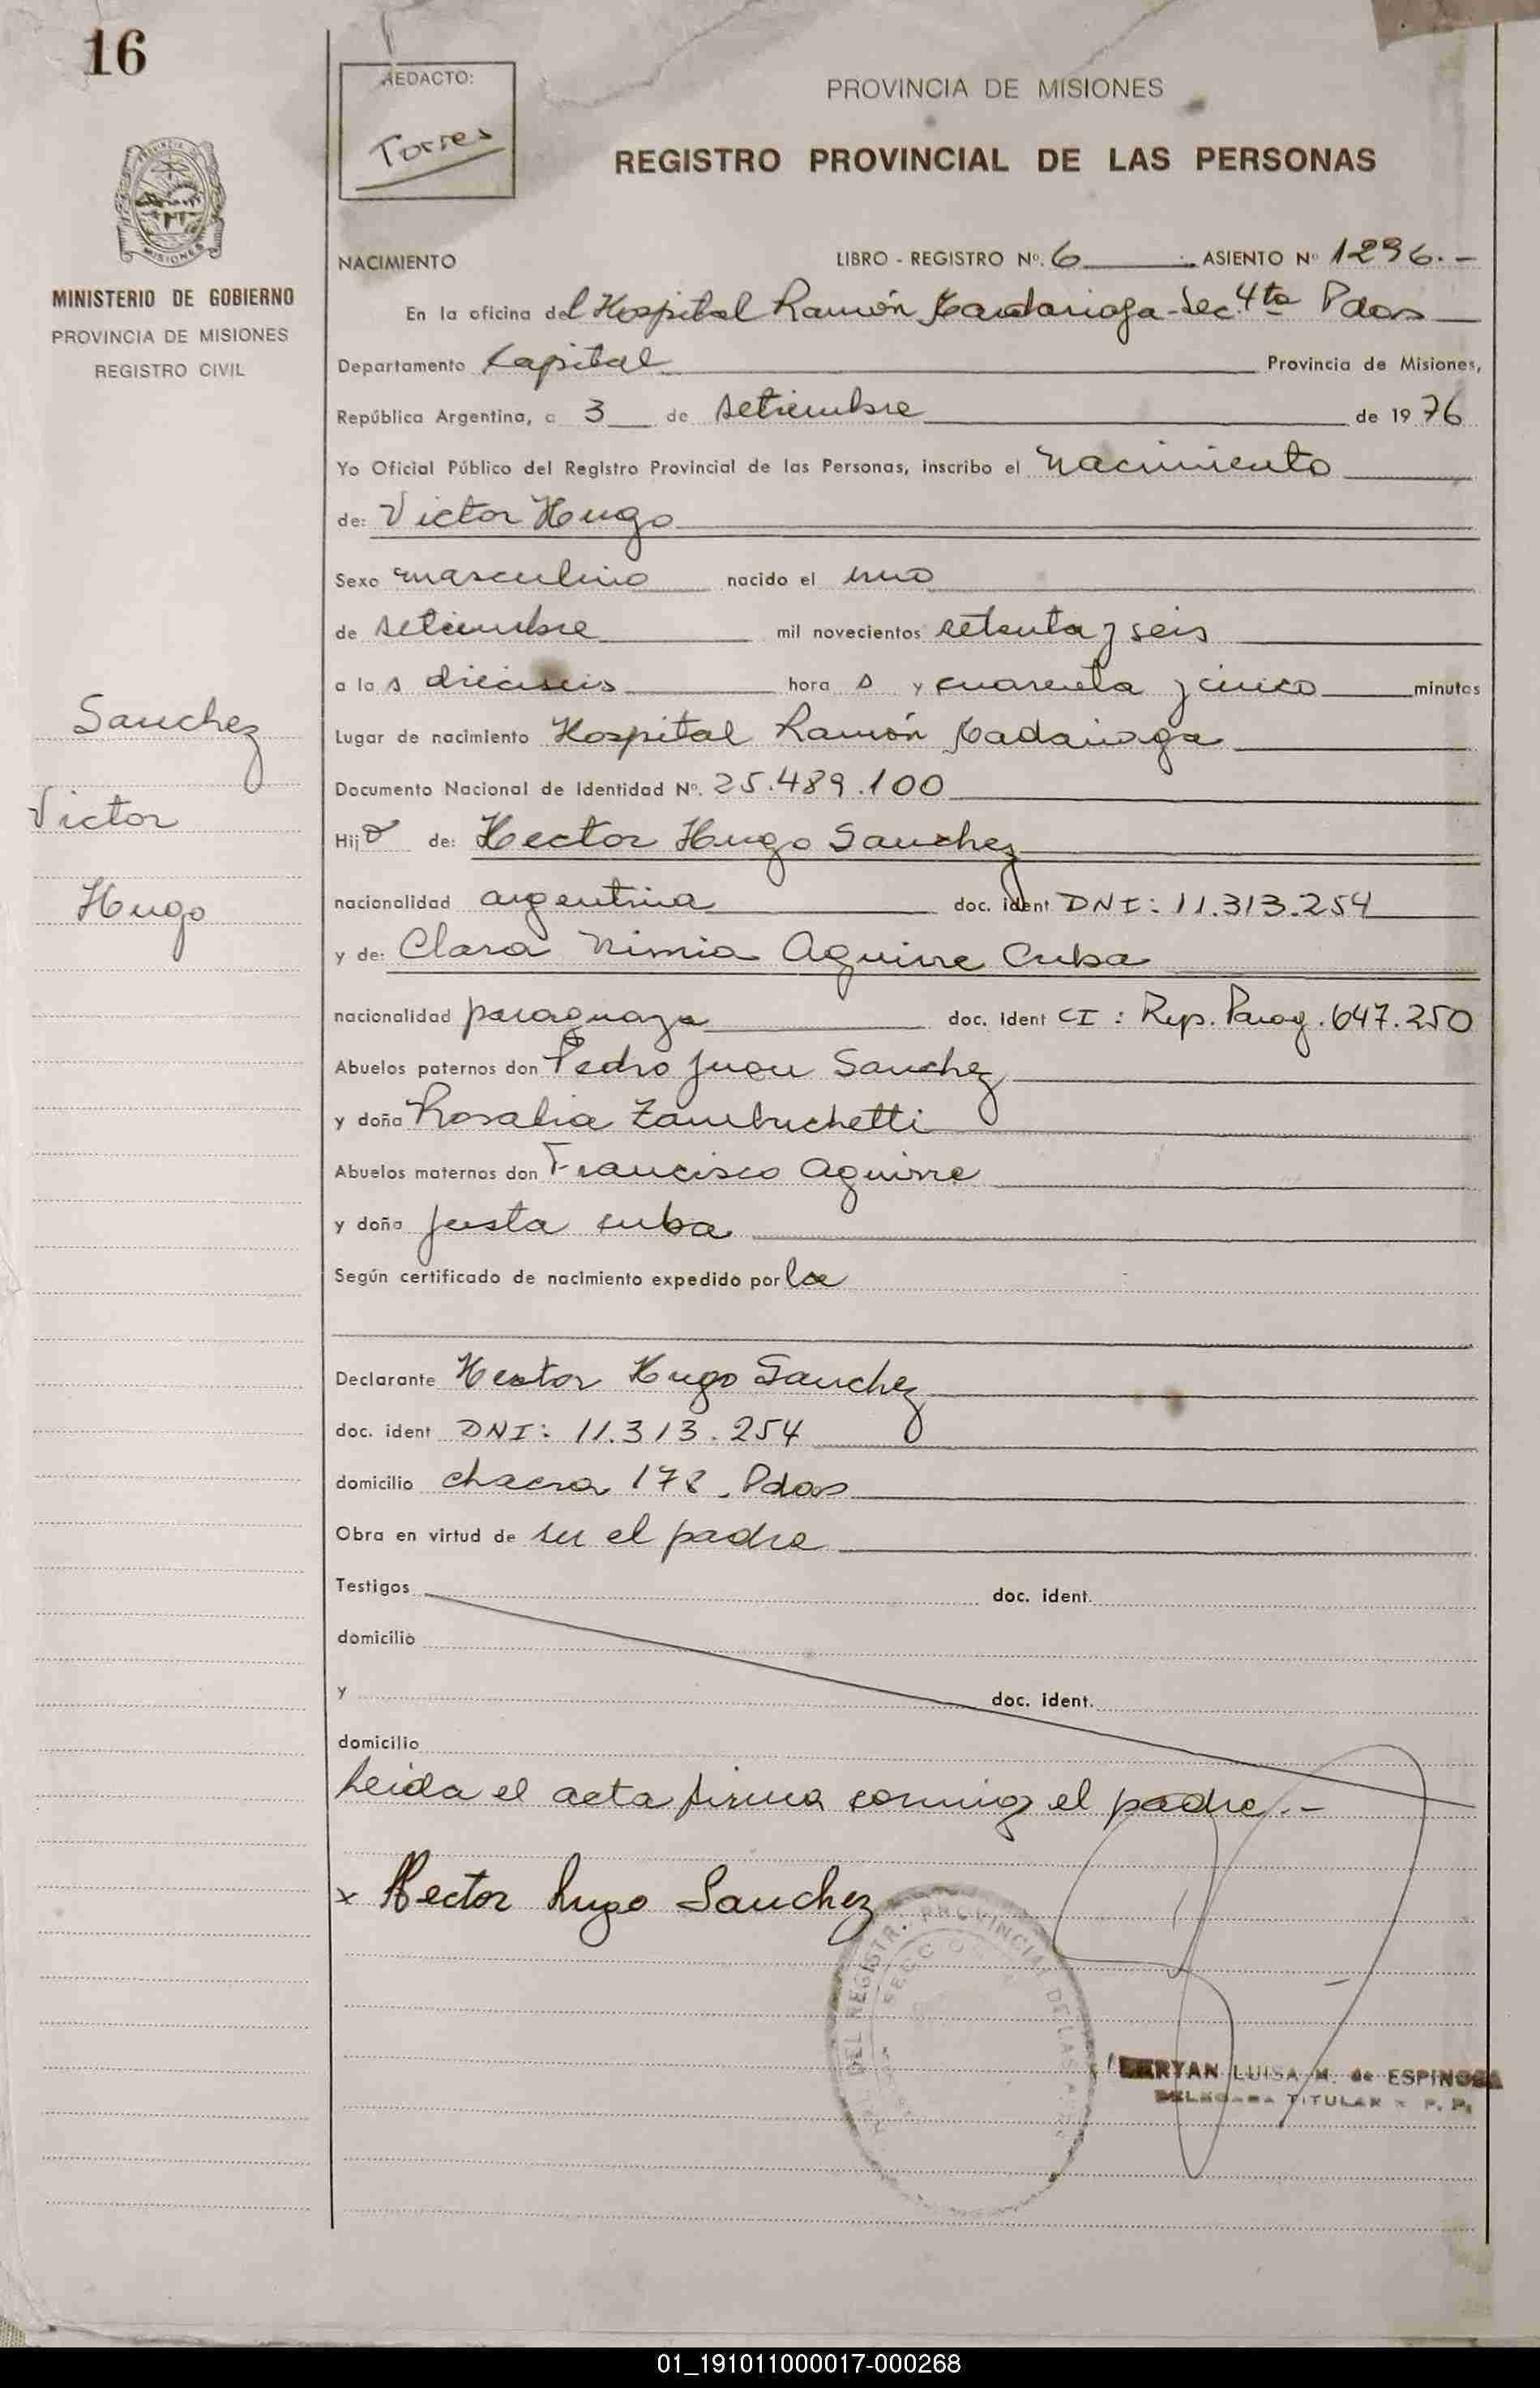 16
REDACTO:
Torres
PROVINCIA DE MISIONES
REGISTRO PROVINCIAL DE LAS PERSONAS
MISIONES
MINISTERIO DE GOBIERNO
PROVINCIA DE MISIONES
REGISTRO CIVIL
NACIMIENTO LIBRO - REGISTRO Nº. 6 ASIENTO Nº 1296.-
En la oficina del Hospital Ramón Sec. 4ta Pdas
Departamento Capital Provincia de Misiones,
República Argentina, a 3 de setiembre de 1976
Yo Oficial Público del Registro Provincial de las Personas, inscribo el nacimiento
de: Victor Hugo
Sexo masculino nacido el uno
de setiembre mil novecientos setenta y seis
a las dieciseis horas y cuarenta y cinco minutos
Sanchez
Lugar de nacimiento Hospital Ramón Madariaga
Documento Nacional de Identidad Nº. 25.489.100
Victor
Hijo de: Hector Hugo Sanchez
nacionalidad argentina doc. ident DNI: 11.313.254
Hugo
y de: Clara Nimia Aguirre Cuba
nacionalidad paraguaya doc. ident CI: Rep. Parag. 647.250
Abuelos paternos don Pedro Juan Sanchez
y doña Rosalia Zambuchetti
Abuelos maternos don Francisco Aguirre
y doña Justa Cuba
Según certificado de nacimiento expedido por la
Declarante Hector Hugo Sanchez
doc. ident DNI: 11.313.254
domicilio chacra 178, Pdas
Obra en virtud de ser el padre
Testigos doc. ident.
domicilio
y doc. ident.
domicilio
Leida el acta firma conmigo el padre.-
x Hector Hugo Sanchez
DEL REGISTR. PROVINCIAL DE LAS
LUISA M. de ESPINOSA
TITULAR
01_191011000017-000268